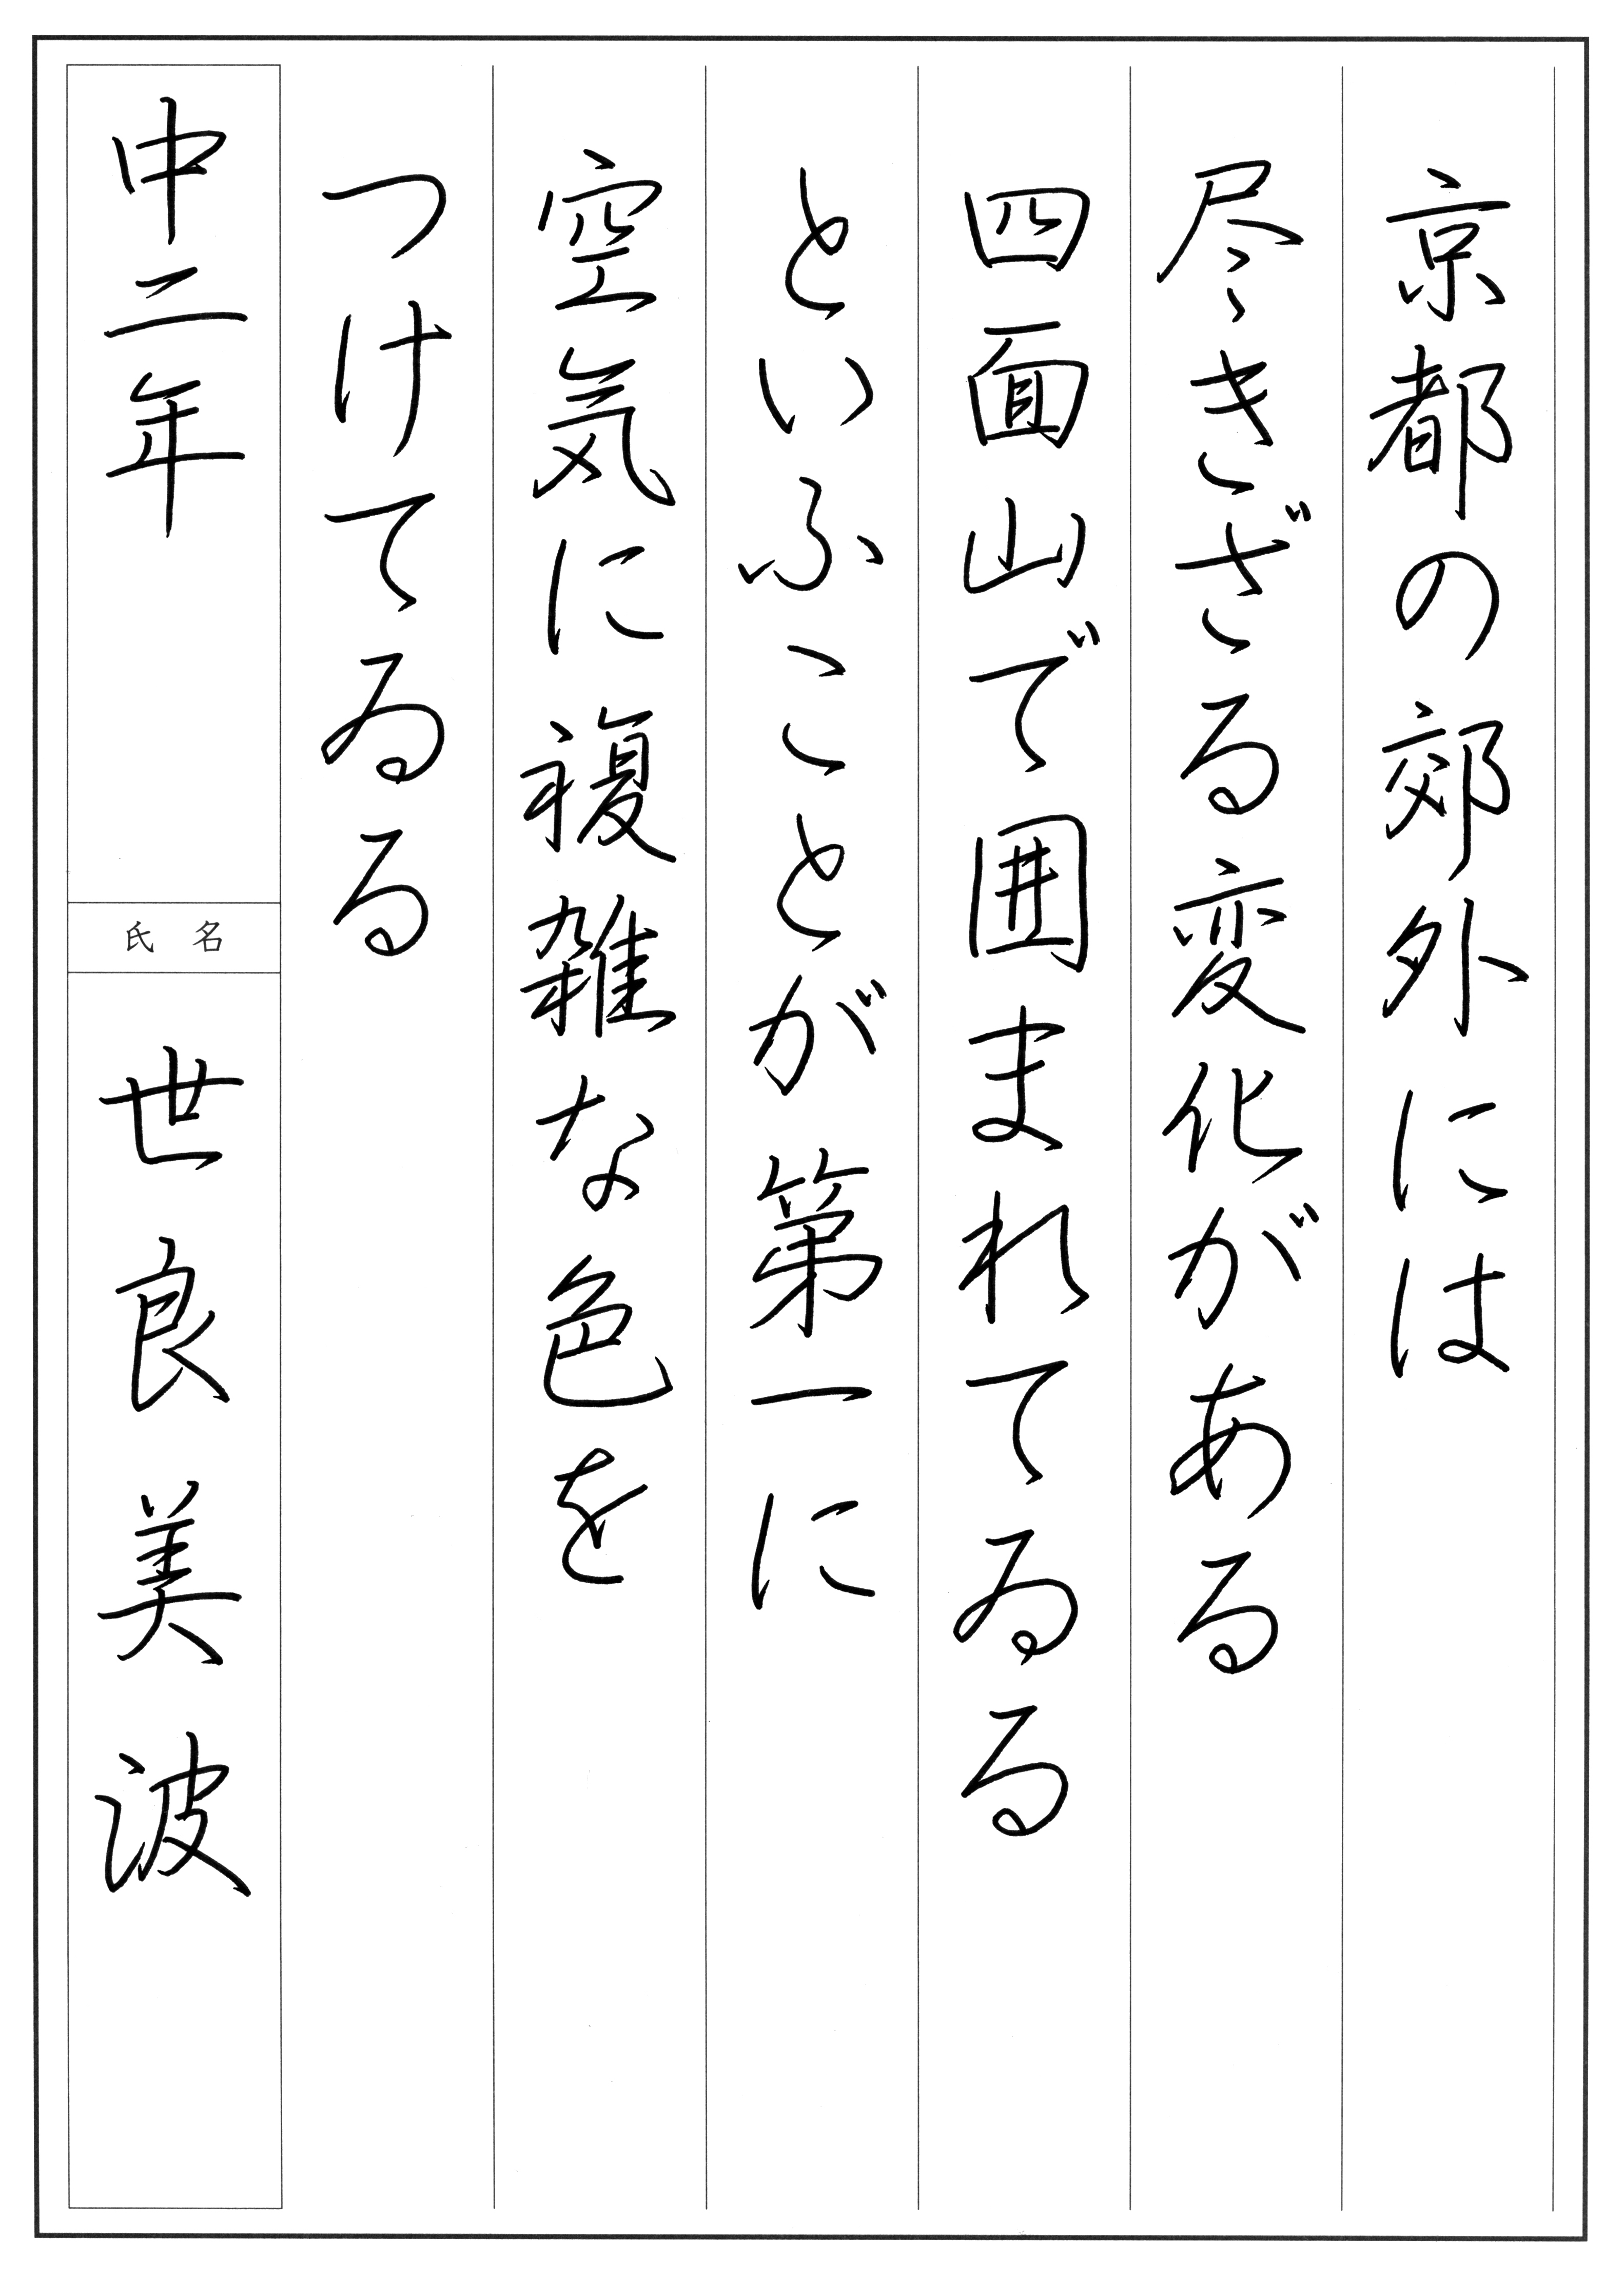 京都の郊外には
尽きざる変化がある
四面山で囲まれてゐる
といふことが第一に
空気に複雑な色を
つけてゐる
中二年
氏名
世良美波